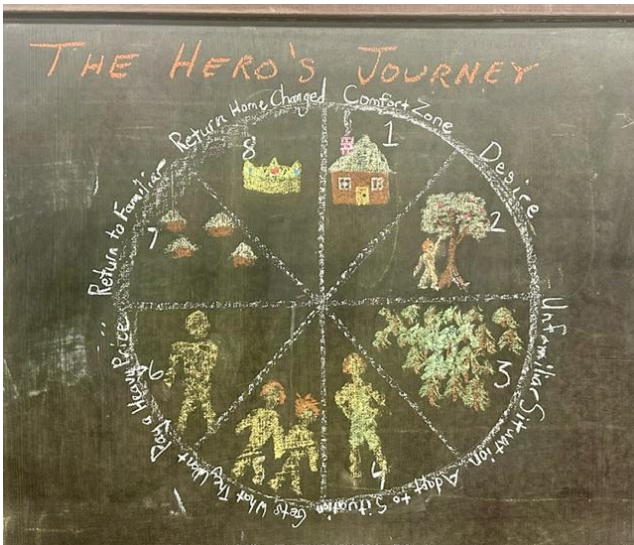 THE HERO'S JOURNEY
Comfort Zone
1
Desire
2
Unfamiliar Situation
3
Adapt to Situation
4
Gets What They Want
5
Pay a Heavy Price
6
Return to Familiar
7
Return Home Changed
8